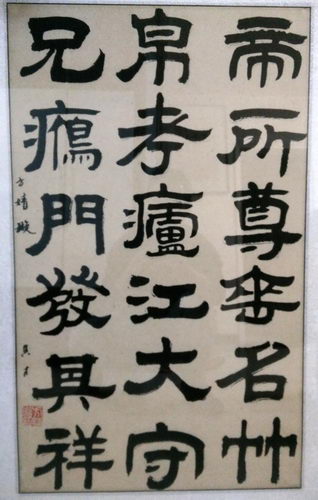 帝所尊垂名竹
帛考廬江大守
兄鴈門發其祥